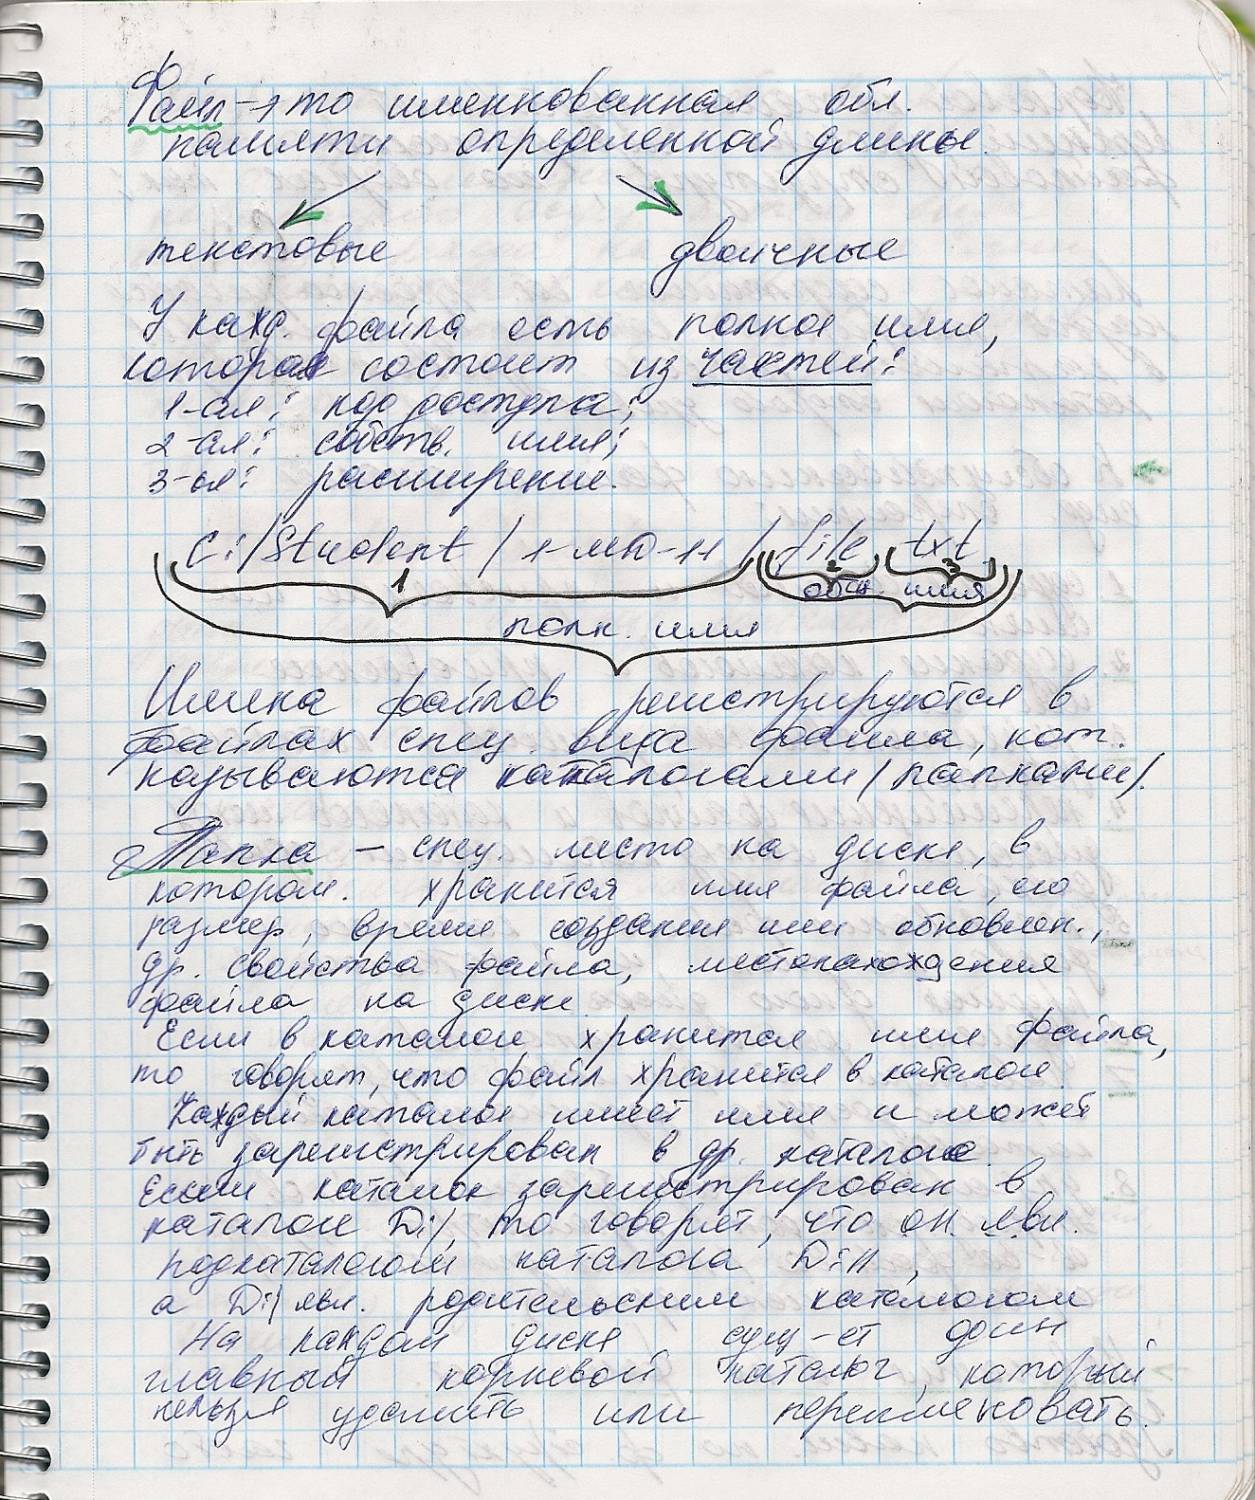 Файл – это именнованная обл.
памяти определенной длины.
текстовые двоичные
У кажд. файла есть полное имя,
которое состоит из частей:
1-ая: код доступа;
2-ая: собств. имя;
3-ья: расширение.
C:/Student / 1-МД-11 / file txt
1 2 3
обсн. имя
полн. имя
Имена файлов регистрируются в
файлах спец. вида файла, кот.
называются каталогами /папками/.
Папка – спец. место на диске, в
котором. хранится имя файла, его
размер, время создания или обновлен.,
др. свойства файла, местонахождения
файла на диске
Если в каталоге хранится имя файла,
то говорят, что файл хранится в каталоге
Каждый каталог имеет имя и может
быть зарегистрирован в др. каталоге.
Если каталог зарегистрирован в
каталоге D:/, то говорят, что он явл.
подкаталогом каталога D:\\,
а D:/ явл. родительским каталогом
На каждом диске сущ-ет один
главный корневой каталог, который
нельзя удалить или переименовать.